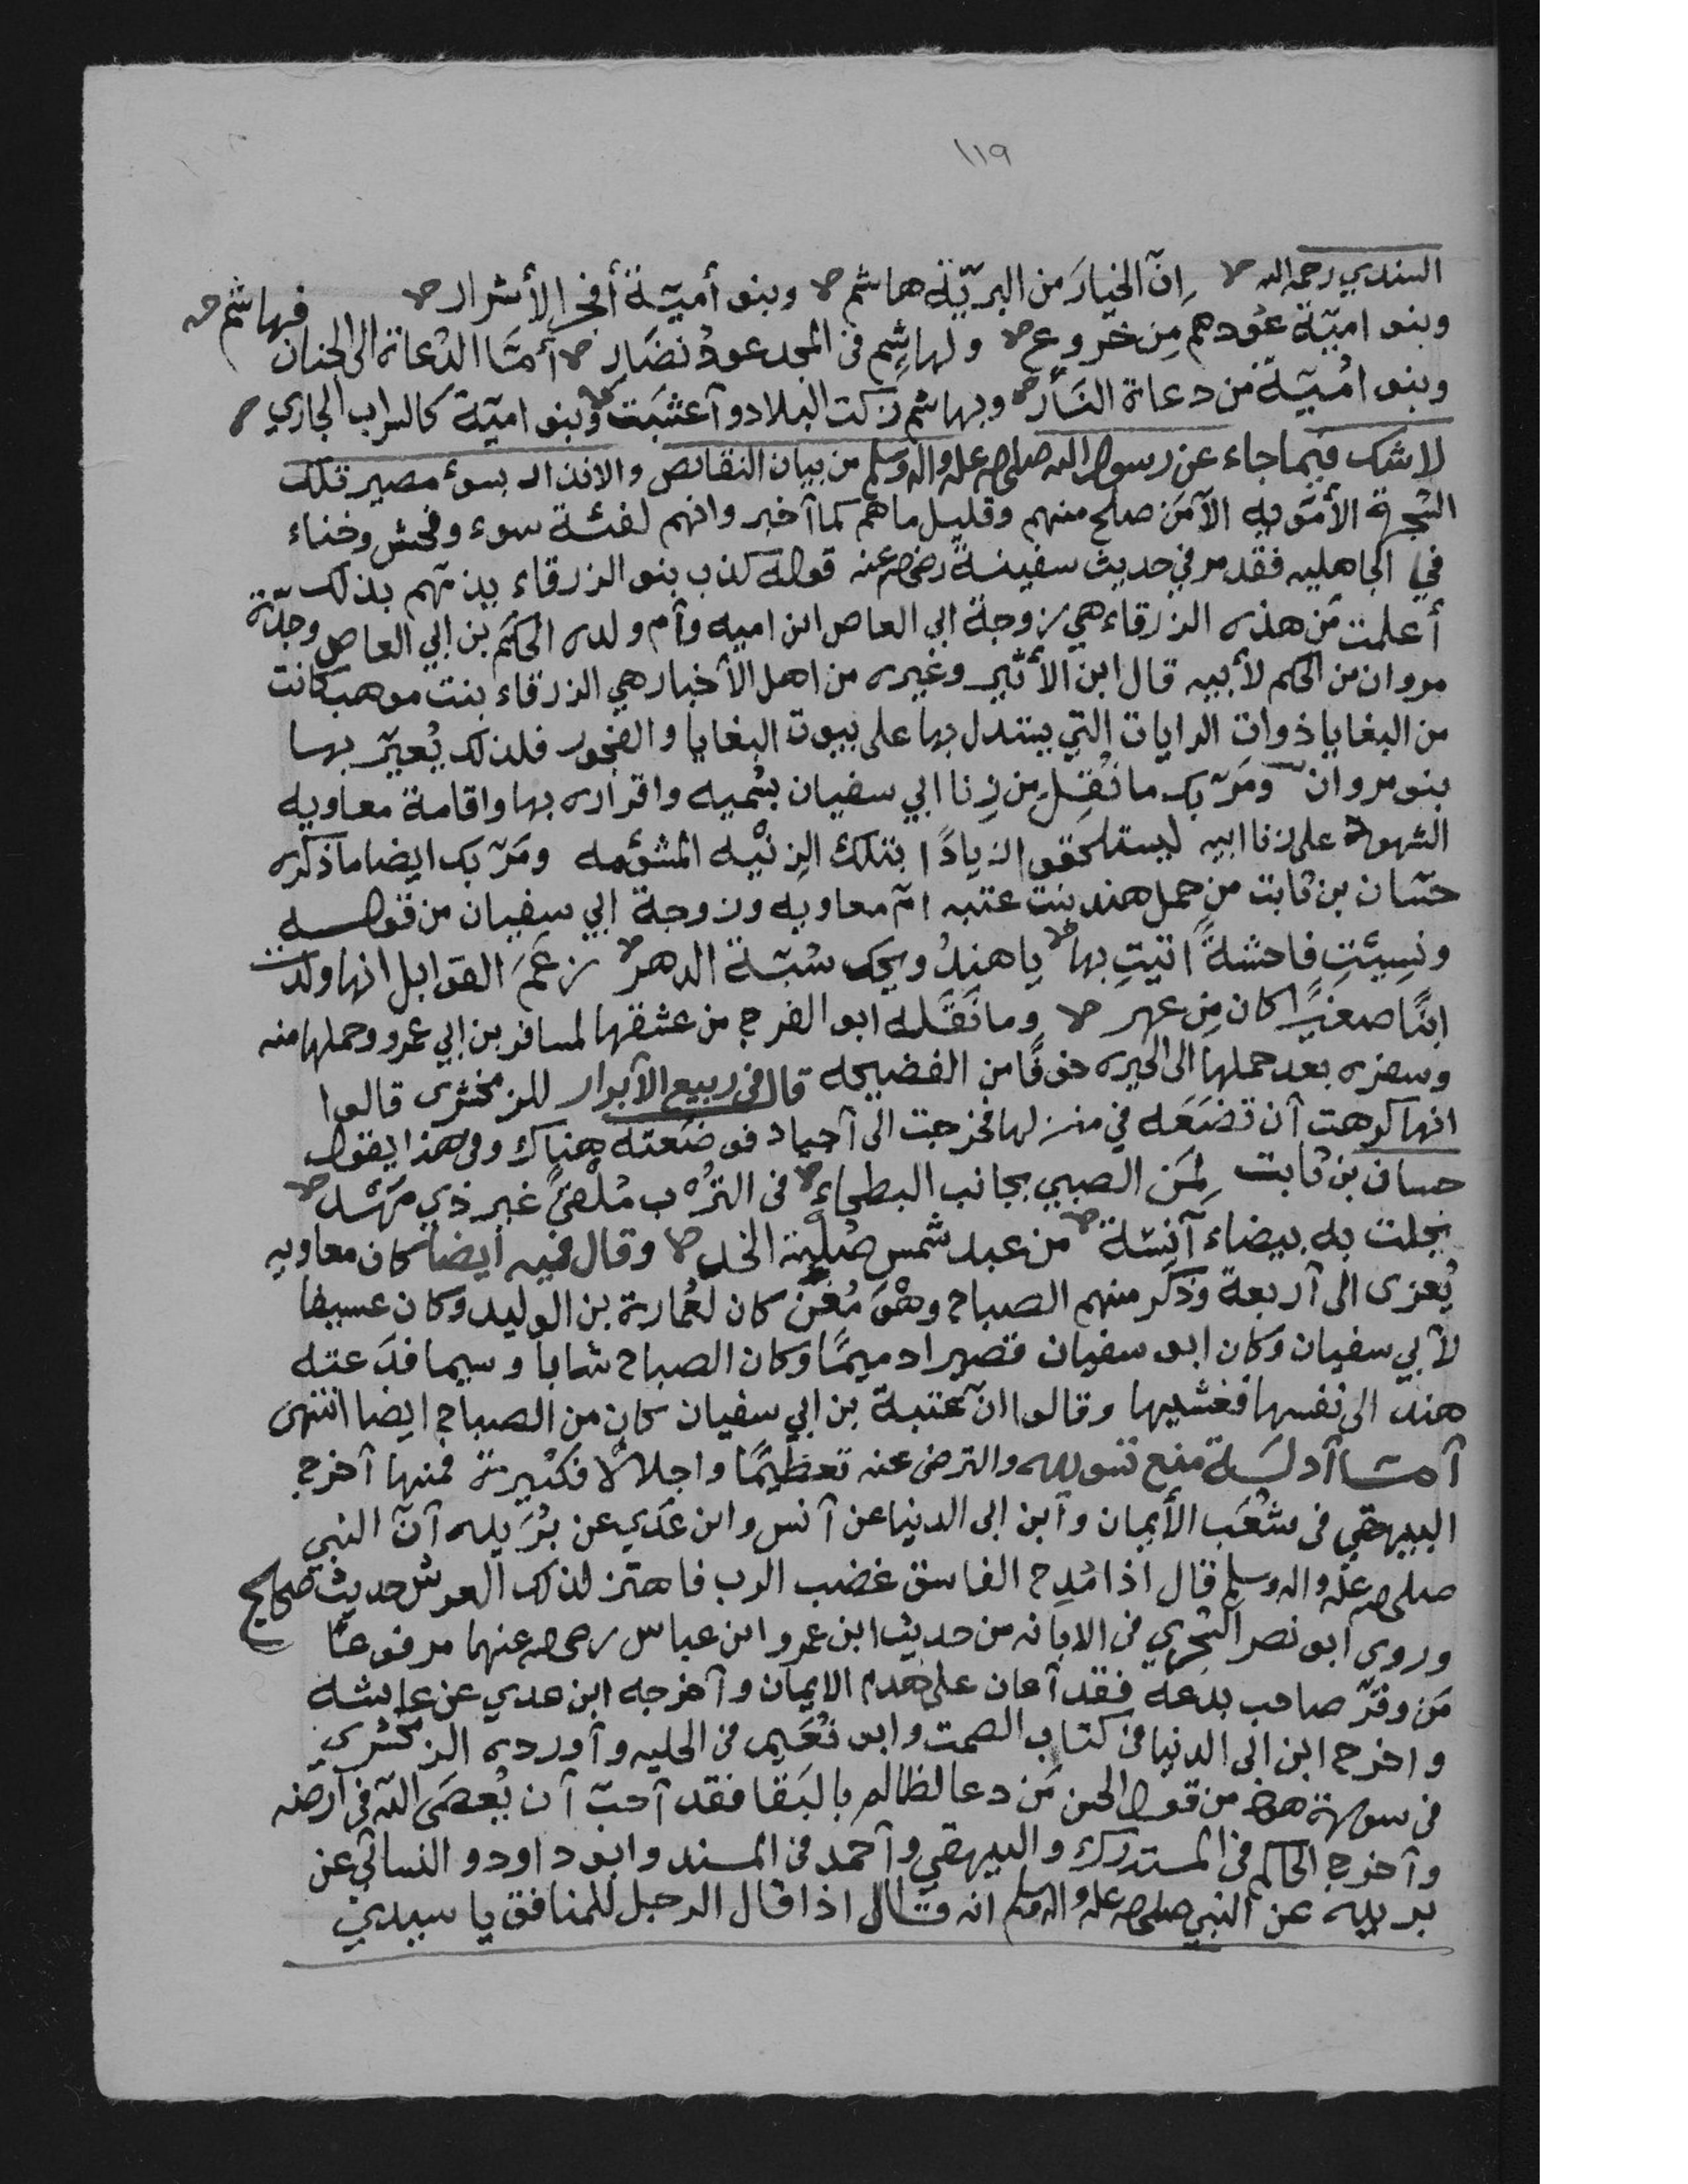 ١١٩
السندي رحمه الله إنّ الخيارَ من البريّة هاشم وبنو أميّة أفجر الأشرار
وبنو اميّة عُودهم مِن خروع ولهاشِم في المجد عودُ نضَار أمّا الدّعاة الى الجنان فهاشم
وبنو اميّة من دعاة النّار وبهاشم زكت البلاد وأعشبَت وبنو اميّة كالسراب الجاري
لاشك فيما جاء عن رسول الله صلى الله عليه واله وسلم من بيان النقائص والانذار بسوء مصير تلك
الشجرة الأمويه الّا مَن صلح منهم وقليل ما هم كما أخبر وانهم لفئة سوء وفحش وخناء
في الجاهليه فقد مر في حديث سفينة رضي الله عنه قوله كذب بنو الزرقاء يذمّهم بذلك
أعلمت مَن هذه الزرقاء هي زوجة ابي العاص ابن اميه وأم ولده الحَكم بن ابي العاص وجدّة
مروان بن الحكم لأبيه قال ابن الأثير وغيره من اهل الأخبار هي الزرقاء بنت موهب كانت
من البغايا ذوات الرايات التي يستدل بها على بيوت البغايا والفجور فلذلك يُعيّر بها
بنو مروان ومَرّ بك ما نُقِل من زِنا ابي سفيان بسُميه واقراره بها واقامة معاويه
الشهود على زنا ابيه ليستلحقوا زيادًا بتلك الزنْيه المشؤمه ومَرّ بك ايضا ما ذكره
حسّان بن ثابت من حمل هند بنت عتبه امّ معاويه وزوجة ابي سفيان من قوله
ونسِيتِ فاحشةً أتيتِ بها يا هندُ ويحك سُبّة الدهر زعَمَ القوابل انها ولدت
ابنًا صغيرًا كان مِن عهر وما نَقَله ابو الفرج من عشقها لمسافر بن ابي عمرو وحملها منه
وسفره بعد حملها الى الحيره خوفًا من الفضيحه قال في ربيع الأبرار للزمخشرى قالوا
انها كرهت أن تضَعَه في منزلها فخرجت الى أجياد فوضَعته هناك وفى هذا يقول
حسان بن ثابت لِمَن الصبيي بجانب البطحاءِ في التُرْب مُلقىً غير ذي مَهْد
نجلت به بيضاء آنِسَة من عبد شمس صُلْبة الخد وقال فيه أيضا كان معاويه
يُعزى الى أربعة وذكر منهم الصباح وهْوَ مُغَنٍّ كان لعُمارة بن الوليد وكان عسيفا
لأبي سفيان وكان ابو سفيان قصيرا دميمًا وكان الصباح شابا وسيما فدَعته
هند الى نفسها فغشيها وقالوا انّ عتبة بن ابي سفيان كان من الصباح ايضا انتهى
أمّا أدلّة منع تسويده والترضى عنه تعظيمًا واجلالًا فكثيرة فمنها أخرج
البيهقي في شُعَب الأيمان وأبن ابى الدنيا عن أنس وابن عَدي عن بُرَيده أنّ النبي
صلى الله عليه واله وسلم قال اذا مُدِح الفاسق غضب الرب فاهتز لذلك العرش حديث صحيح
وروى ابو نصر السّجزي في الابانه من حديث ابن عمر وابن عباس رضي الله عنهما مرفوعًا
مَن وقّر صاحب بدعة فقد أعان على هدم الايمان وأخرجه ابن عدي عن عايشه
واخرج ابن ابى الدنيا في كتاب الصمت وابو نُعَيم في الحليه وأورده الزمخشري
في سورة هود من قول الحسن مَن دعا لظالم بالبَقا فقد أحبّ أن يُعصَى اللّه في أرضه
وأخرج الحاكم في المستدرك والبيهقي وأحمد في المسند وابو داود والنسائي عن
بريده عن النبي صلى الله عليه واله وسلم انه قال اذا قال الرجل للمنافق يا سيدي